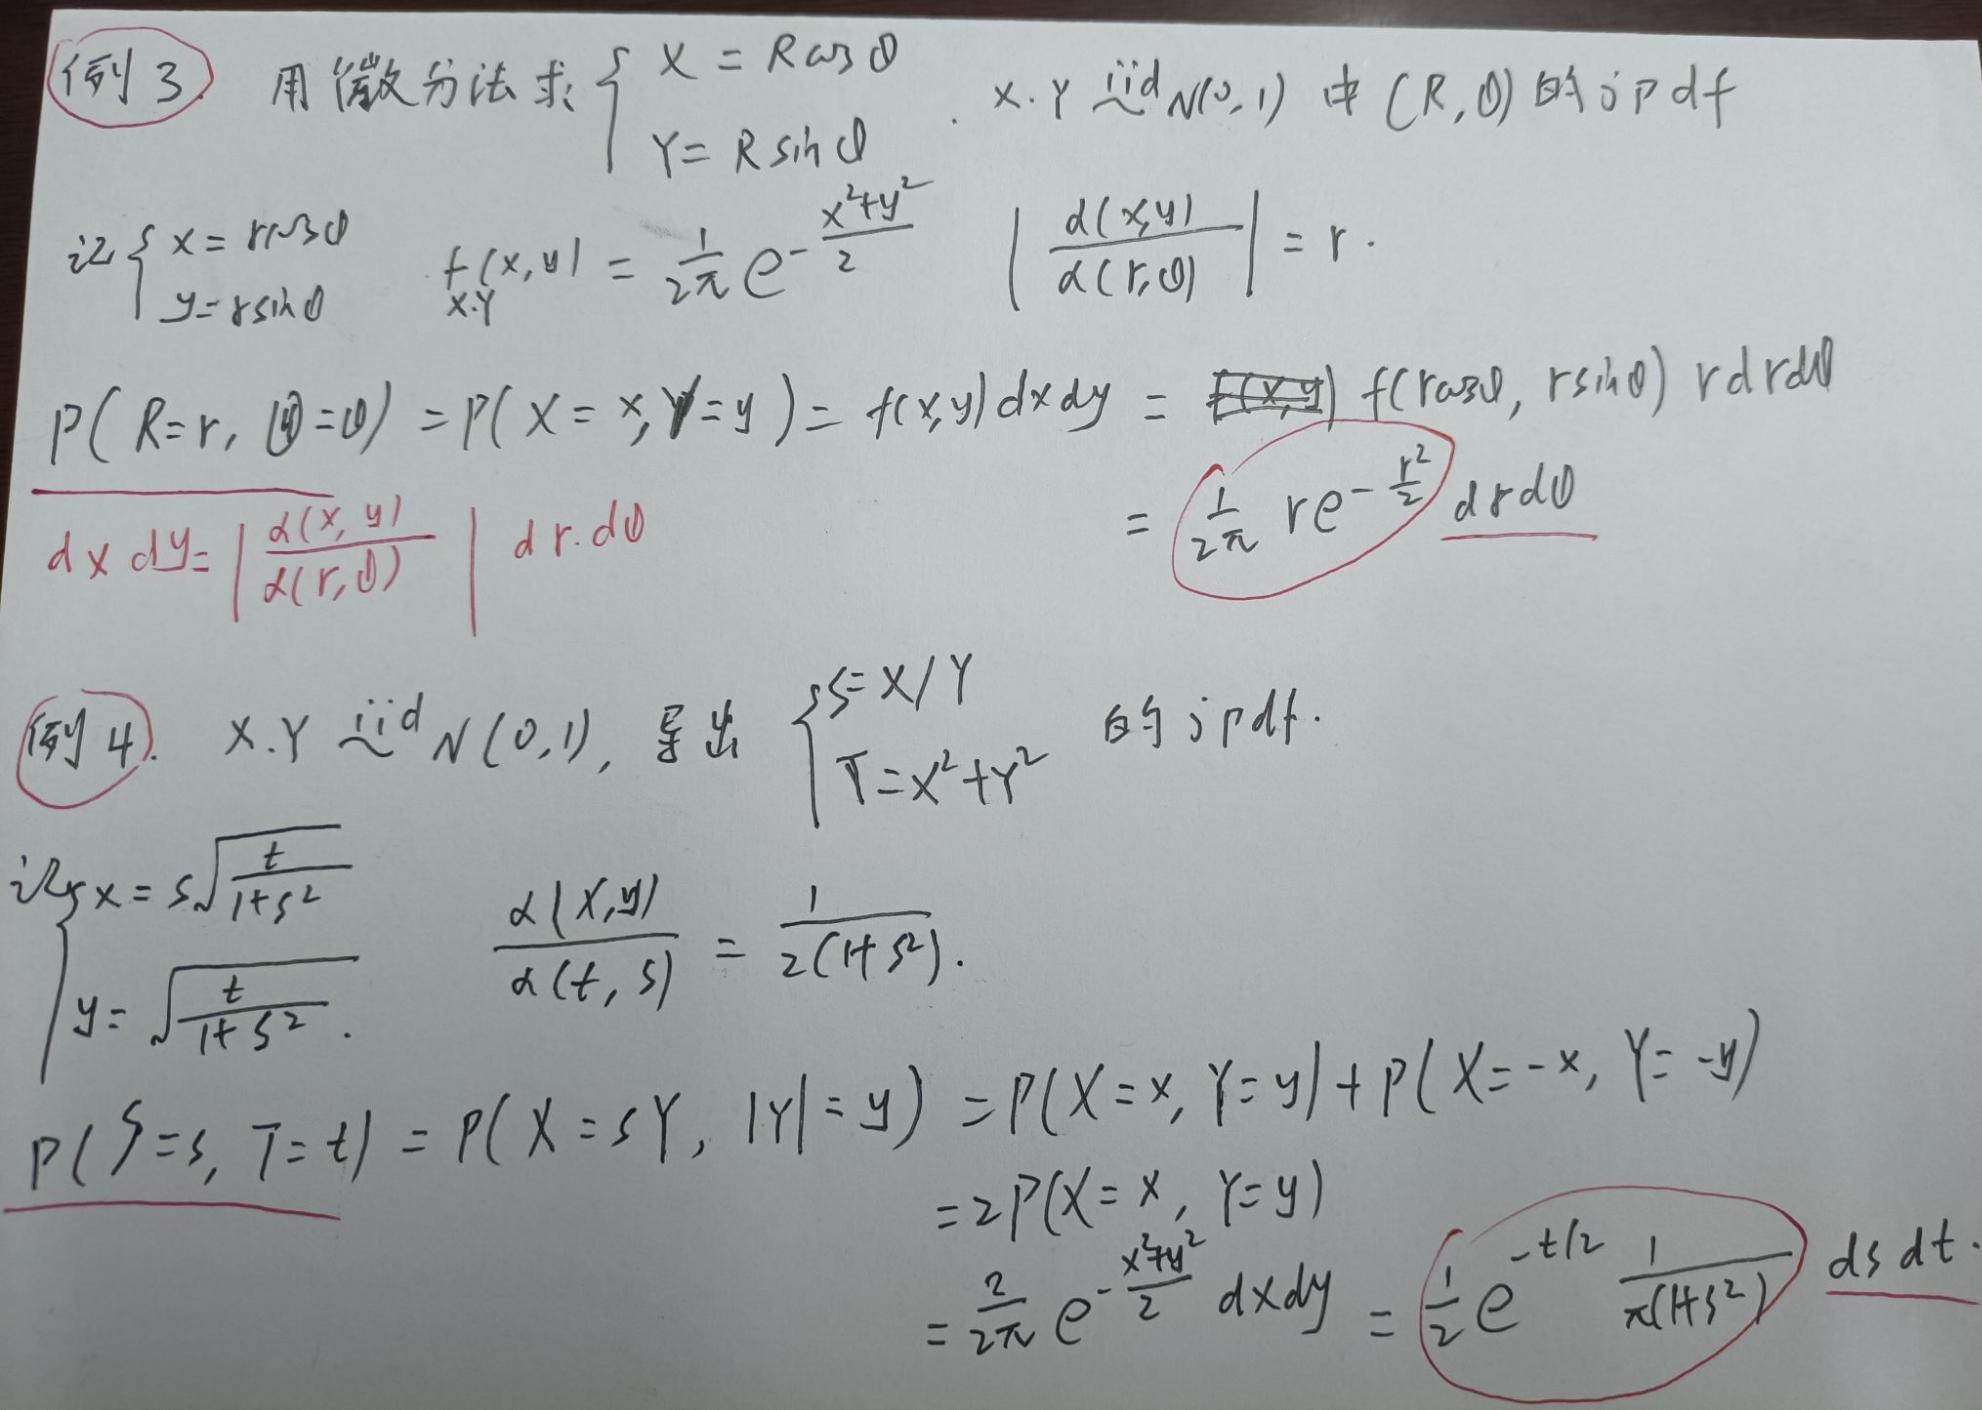 例3. 用微分法求 { X = R cos θ, Y = R sin θ . X.Y iid ~ N(0,1) 中 (R, θ) 的 jpdf
记 { x = r cos θ, y = r sin θ    f_{X.Y}(x,y) = \frac{1}{2π} e^{-\frac{x²+y²}{2}}    | \frac{∂(x,y)}{∂(r,θ)} | = r.
P(R=r, Θ=θ) = P(X=x, Y=y) = f(x,y)dxdy = f(r cos θ, r sin θ) r dr dθ
= \frac{1}{2π} r e^{-\frac{r²}{2}} dr dθ
dx dy = | \frac{∂(x,y)}{∂(r,θ)} | dr.dθ
例4. X.Y iid ~ N(0,1), 导出 { S = X/Y, T = X²+Y² 的 jpdf.
记 { x = s\sqrt{\frac{t}{1+s²}}, y = \sqrt{\frac{t}{1+s²}}.    \frac{∂(x,y)}{∂(t,s)} = \frac{1}{2(1+s²)}.
P(S=s, T=t) = P(X=sY, |Y|=y) = P(X=x, Y=y) + P(X=-x, Y=-y)
= 2P(X=x, Y=y)
= \frac{2}{2π} e^{-\frac{x²+y²}{2}} dxdy = \frac{1}{2} e^{-t/2} \frac{1}{π(1+s²)} ds dt.